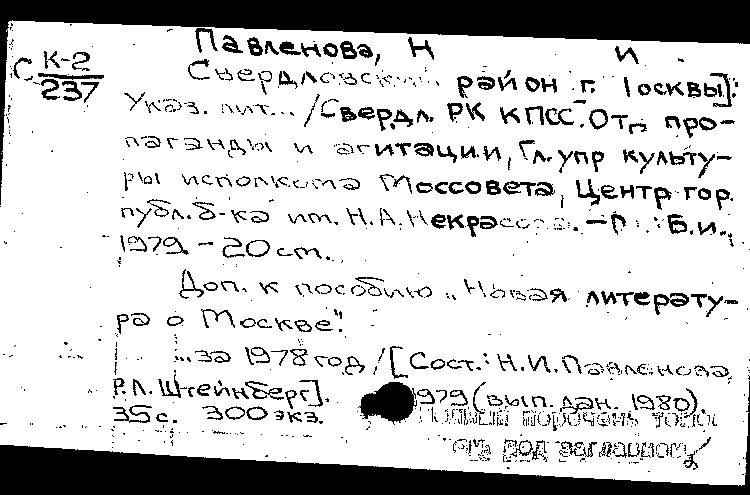 Павленова, Н И.
С К-2
237
Свердловский район г. Москвы]:
Указ. лит... /Свердл. РК КПСС. Отд. про-
паганды и агитации, Гл. упр культу-
ры исполкома Моссовета, Центр. гор.
публ. б-ка им. Н.А. Некрасова. – М.: Б.и.,
1979. – 20 cm.
Доп. к пособию „Новая литерату-
ра о Москве".
...за 1978 год / [Сост.: Н.И. Павленова,
Р.Л. Штейнберг]. 1979 (вып. дан. 1980).
35 с. 300 экз.
Полный перечень томов
см. под заглавием